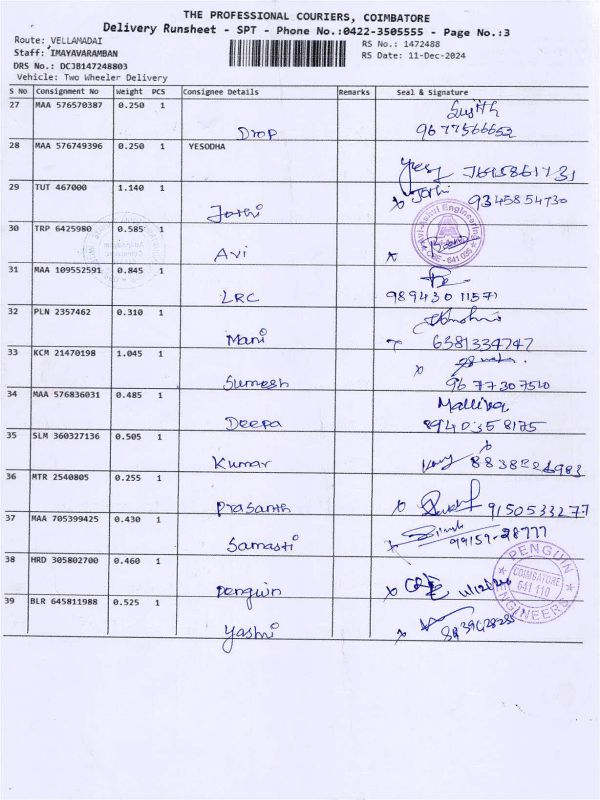 THE PROFESSIONAL COURIERS, COIMBATORE
Delivery Runsheet - SPT - Phone No.:0422-3505555 - Page No.:3
Route: VELLAMADAI
RS No.: 1472488
Staff: IMAYAVARAMBAN
RS Date: 11-Dec-2024
DRS No.: DCJB147248803
Vehicle: Two Wheeler Delivery
S No Consignment No Weight PCS Consignee Details Remarks Seal & Signature
27 MAA 576570387 0.250 1
Drop
Sujith
9677566652
28 MAA 576749396 0.250 1 YESODHA
29 TUT 467000 1.140 1
Joshi
Joshi
9345854730
30 TRP 6425980 0.585 1
Avi
Engineering
CBE - 641 035
31 MAA 109552591 0.845 1
LRC
9894301157
32 PLN 2357462 0.310 1
Mani
6381334747
33 KCM 21470198 1.045 1
Sumesh
9677307510
34 MAA 576836031 0.485 1
Deepa
Mallika
8940358175
35 SLM 360327136 0.505 1
Kumar
36 MTR 2540805 0.255 1
Prasanth
9150533277
37 MAA 705399425 0.430 1
Samasti
99159-28777
38 HRD 305802700 0.460 1
Penguin
PENGUIN ENGINEERS
COIMBATORE
641 110
39 BLR 645811988 0.525 1
Yashi